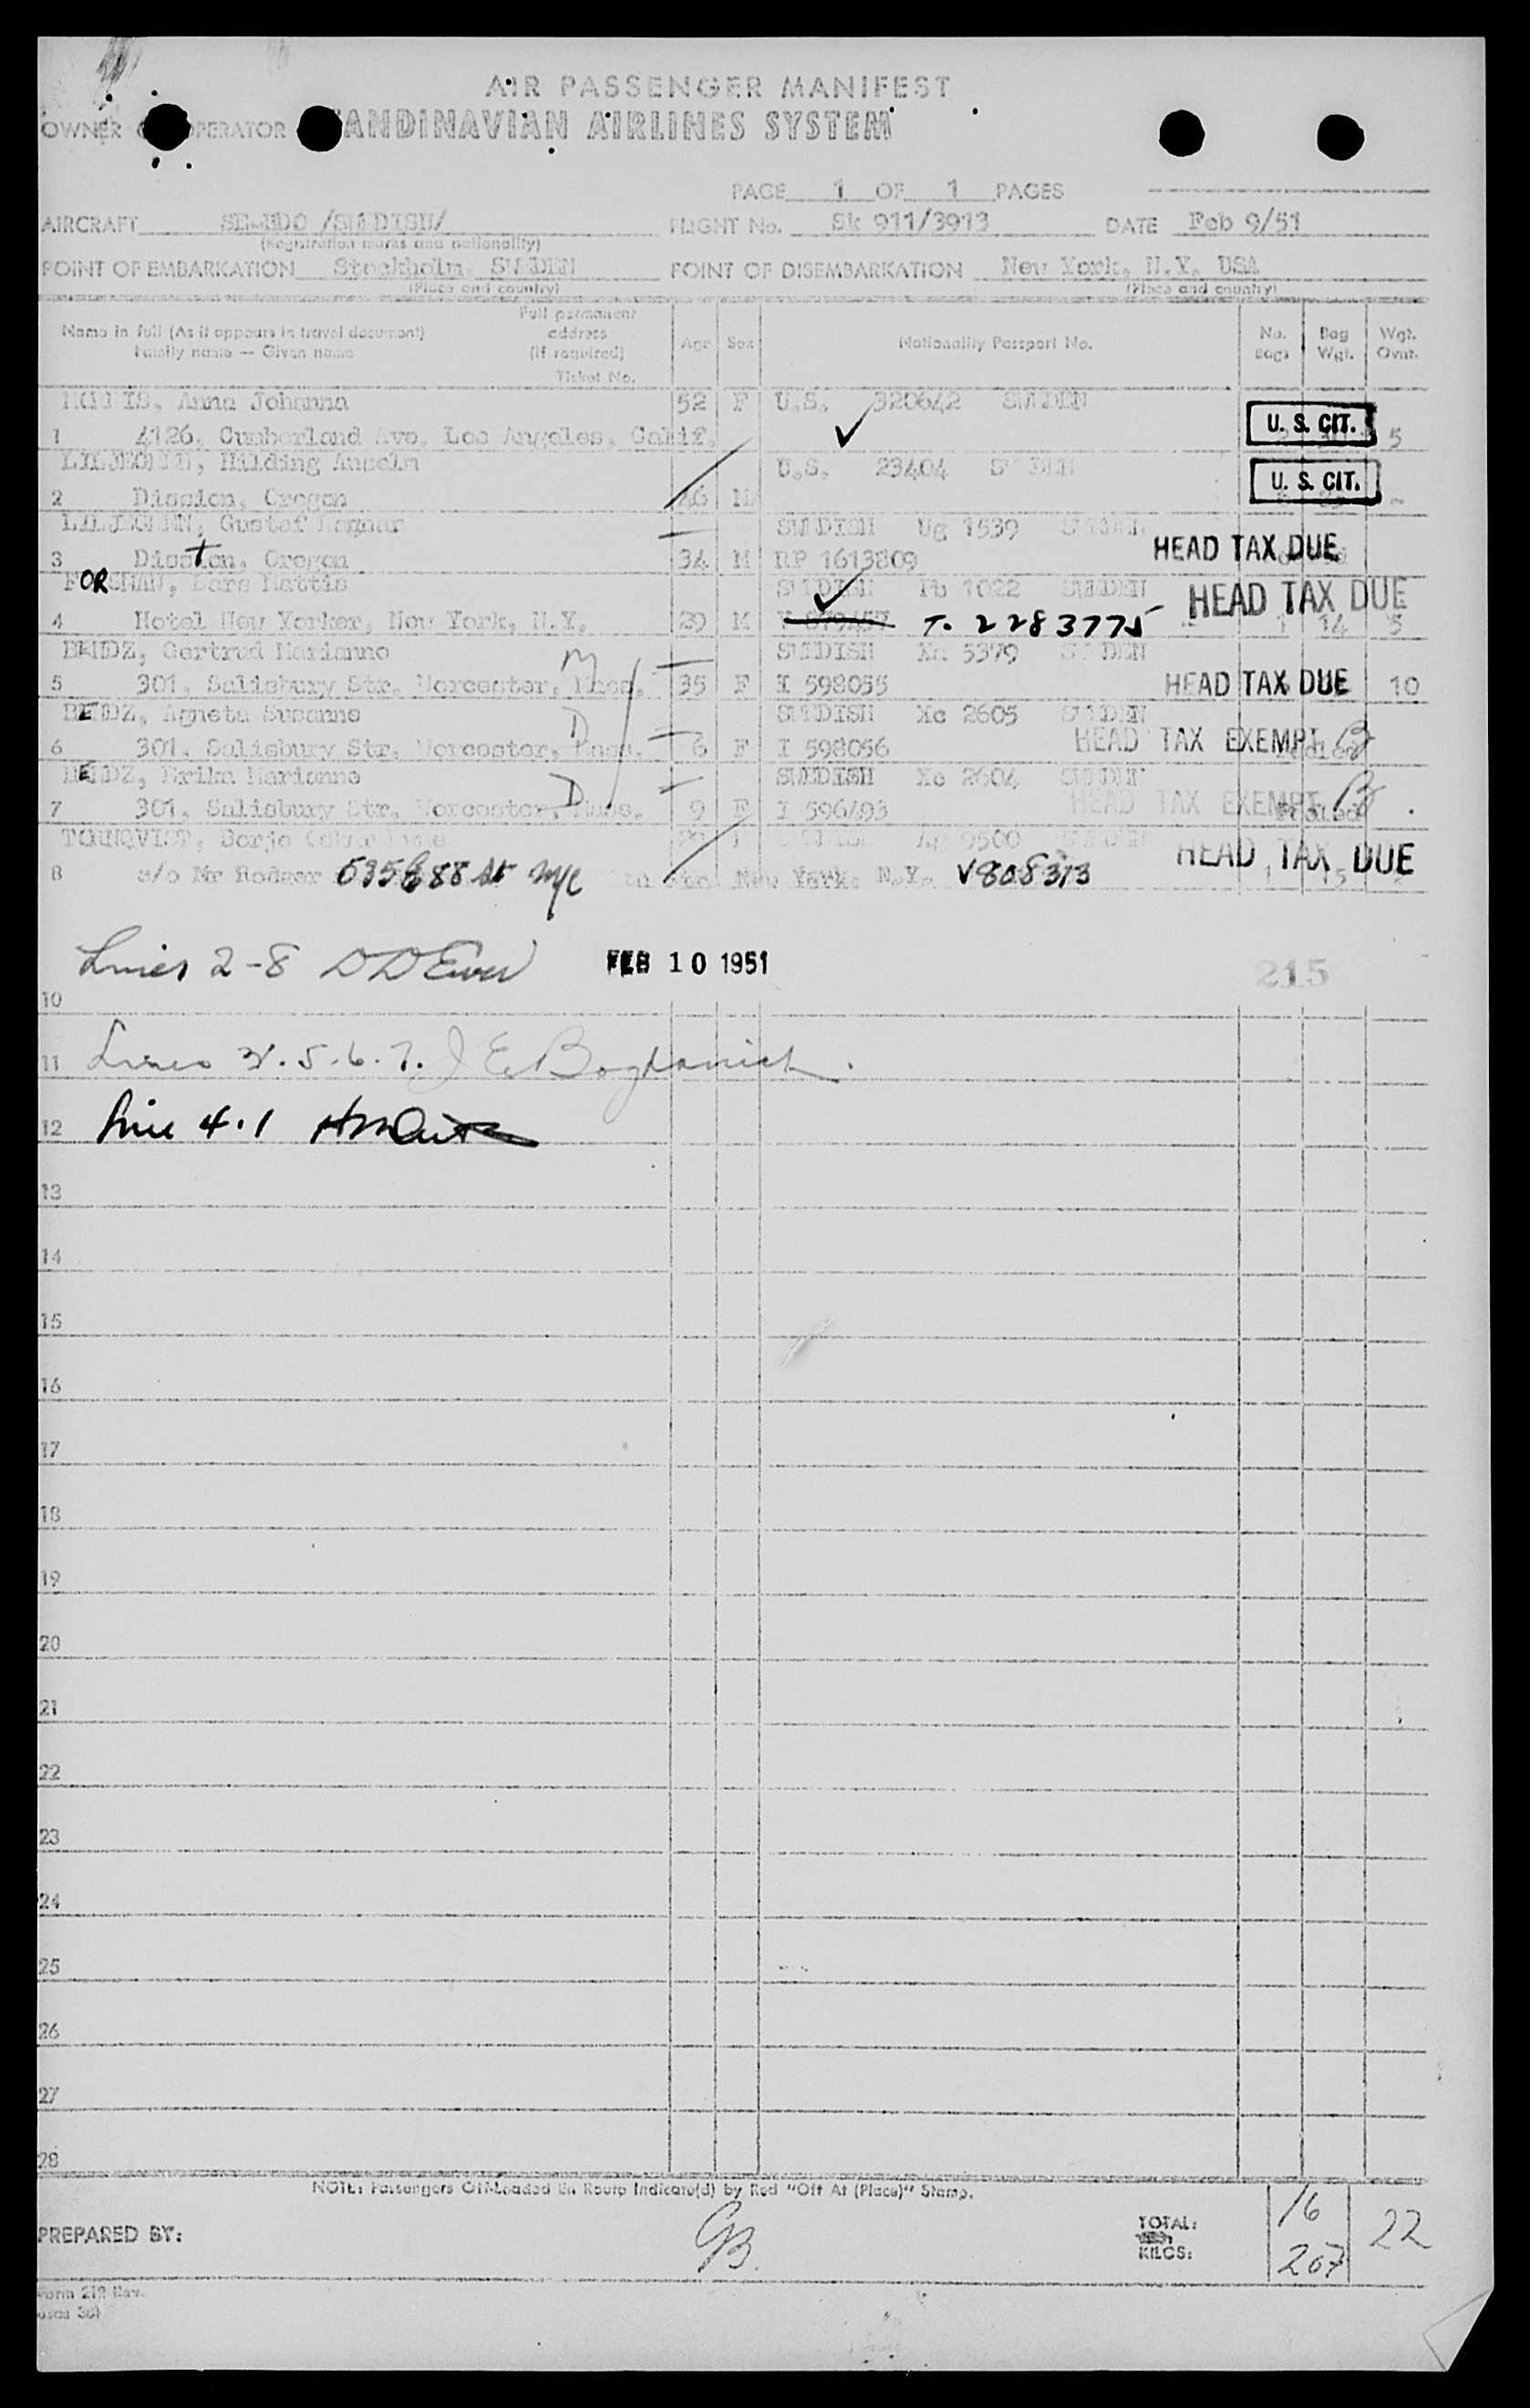 AIR PASSENGER MANIFEST
OWNER OPERATOR ANDINAVIAN AIRLINES SYSTEM
PAGE 1 OF 1 PAGES
AIRCRAFT /SWEDISH/ FLIGHT No. SK 911/3913 DATE Feb 9/51
(Registration marks and nationality)
POINT OF EMBARKATION Stockholm SWEDEN POINT OF DISEMBARKATION New York, N.Y. USA
(Place and country) (Place and country)
Name in full (As it appears in travel document) Family name — Given name Full permanent address (if required) Ticket No. Age Sex Nationality Passport No. No. Bags Bag Wgt. Wgt. Ovnt.
Anna Johanna 52 F U.S. 320642 SWEDEN
1 4126, Cumberland Ave, Los Angeles, Calif. U. S. CIT. 5
Hilding Anselm U.S. 23404
2 Dission, Oregon 46 M U. S. CIT. -
Gustaf Ragnar SWEDISH Ug 1539
3 Disston, Oregon 34 M RP 1613809 HEAD TAX DUE
FORSMAN, Lars Mattis SWEDISH 1022 SWEDEN
4 Hotel New Yorker, New York, N.Y. 29 M T. 2283775 HEAD TAX DUE 1 14 5
BENDZ, Gertrud Marianne M SWEDISH 5379 SWEDEN
5 301, Salisbury Str. Worcester, Mass. 35 F I 598055 HEAD TAX DUE 10
BENDZ, Agneta Susanne D SWEDISH Xc 2605 SWEDEN
6 301, Salisbury Str. Worcester, Mass. 6 F I 598056 HEAD TAX EXEMPT
BENDZ, Erika Marianne D SWEDISH Xc 2604 SWEDEN
7 301, Salisbury Str. Worcester, Mass. 9 F I 596493 HEAD TAX EXEMPT
TORNQVIST, Borje 9500
8 c/o Mr Rodger 88 St NYC New York, N.Y. V808313 HEAD TAX DUE
Lines 2-8 FEB 10 1951 215
10
11 Lines 3. 5. 6. 7. J E Bogdanich.
12 Line 4.1
13
14
15
16
17
18
19
20
21
22
23
24
25
26
27
28
NOTE: Passengers Off-Loaded En Route Indicate(d) by Red "Off At (Place)" Stamp.
PREPARED BY: GB. TOTAL: 16 22
KILOS: 207
Form 218 Rev.